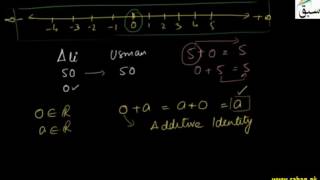 -∞ -4 -3 -2 -1 0 1 2 3 4 5 +∞
سبق
Ali Usman 5+0 = 5
50 → 50 0+5 = 5
0 ✓
0 ∈ R 0+a = a+0 = a ✓
a ∈ R Additive Identity
www.sabaq.pk